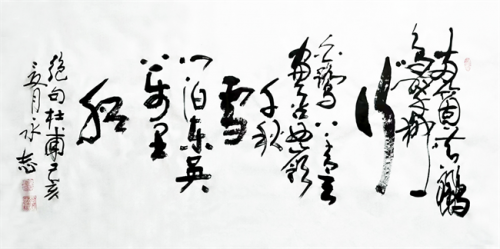 两箇黄鹂
鸣翠柳
一行
白鹭上青天
窗含西岭
千秋
雪
门泊东吴
万里
船
绝句杜甫己亥
三月永志